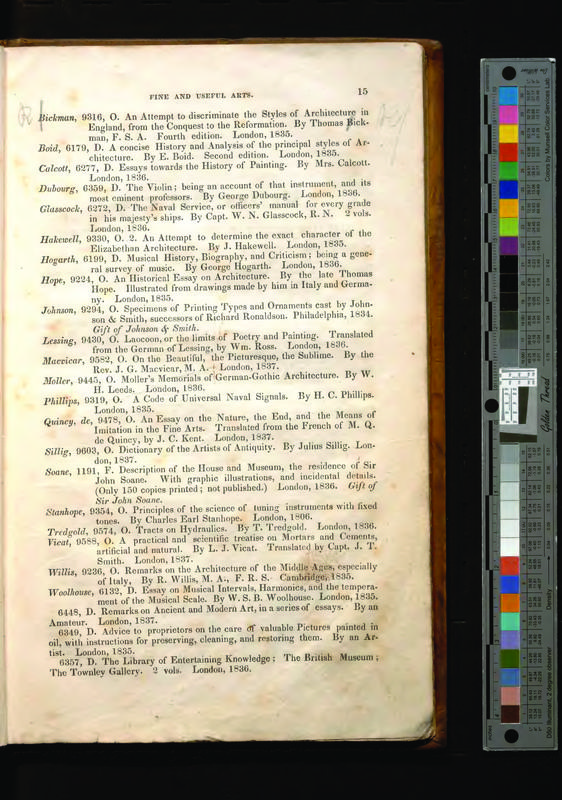 FINE AND USEFUL ARTS. 15
Bickman, 9316, O. An Attempt to discriminate the Styles of Architecture in
England, from the Conquest to the Reformation. By Thomas Bick-
man, F. S. A. Fourth edition. London, 1835.
Boid, 6179, D. A concise History and Analysis of the principal styles of Ar-
chitecture. By E. Boid. Second edition. London, 1835.
Calcott, 6277, D. Essays towards the History of Painting. By Mrs. Calcott.
London, 1836.
Dubourg, 6359, D. The Violin; being an account of that instrument, and its
most eminent professors. By George Dubourg. London, 1836.
Glasscock, 6272, D. The Naval Service, or officers' manual for every grade
in his majesty's ships. By Capt. W. N. Glasscock, R. N. 2 vols.
London, 1836.
Hakewell, 9330, O. 2. An Attempt to determine the exact character of the
Elizabethan Architecture. By J. Hakewell. London, 1835.
Hogarth, 6199, D. Musical History, Biography, and Criticism; being a gene-
ral survey of music. By George Hogarth. London, 1836.
Hope, 9224, O. An Historical Essay on Architecture. By the late Thomas
Hope. Illustrated from drawings made by him in Italy and Germa-
ny. London, 1835.
Johnson, 9294, O. Specimens of Printing Types and Ornaments cast by John-
son & Smith, successors of Richard Ronaldson. Philadelphia, 1834.
Gift of Johnson & Smith.
Lessing, 9430, O. Laocoon, or the limits of Poetry and Painting. Translated
from the German of Lessing, by Wm. Ross. London, 1836.
Macvicar, 9582, O. On the Beautiful, the Picturesque, the Sublime. By the
Rev. J. G. Macvicar, M. A. London, 1837.
Moller, 9445, O. Moller's Memorials of German-Gothic Architecture. By W.
H. Leeds. London, 1836.
Phillips, 9319, O. A Code of Universal Naval Signals. By H. C. Phillips.
London, 1835.
Quincy, de, 9478, O. An Essay on the Nature, the End, and the Means of
Imitation in the Fine Arts. Translated from the French of M. Q.
de Quincy, by J. C. Kent. London, 1837.
Sillig, 9603, O. Dictionary of the Artists of Antiquity. By Julius Sillig. Lon-
don, 1837.
Soane, 1191, F. Description of the House and Museum, the residence of Sir
John Soane. With graphic illustrations, and incidental details.
(Only 150 copies printed; not published.) London, 1836. Gift of
Sir John Soane.
Stanhope, 9354, O. Principles of the science of tuning instruments with fixed
tones. By Charles Earl Stanhope. London, 1806.
Tredgold, 9574, O. Tracts on Hydraulics. By T. Tredgold. London, 1836.
Vicat, 9588, O. A practical and scientific treatise on Mortars and Cements,
artificial and natural. By L. J. Vicat. Translated by Capt. J. T.
Smith. London, 1837.
Willis, 9236, O. Remarks on the Architecture of the Middle Ages, especially
of Italy, By R. Willis, M. A., F. R. S. Cambridge, 1835.
Woolhouse, 6132, D. Essay on Musical Intervals, Harmonics, and the tempera-
ment of the Musical Scale. By W. S. B. Woolhouse. London, 1835.
6448, D. Remarks on Ancient and Modern Art, in a series of essays. By an
Amateur. London, 1837.
6349, D. Advice to proprietors on the care of valuable Pictures painted in
oil, with instructions for preserving, cleaning, and restoring them. By an Ar-
tist. London, 1835.
6357, D. The Library of Entertaining Knowledge; The British Museum;
The Townley Gallery. 2 vols. London, 1836.
Golden Thread
Colors by Munsell Color Services Lab
Density
D50 Illuminant, 2 degree observer